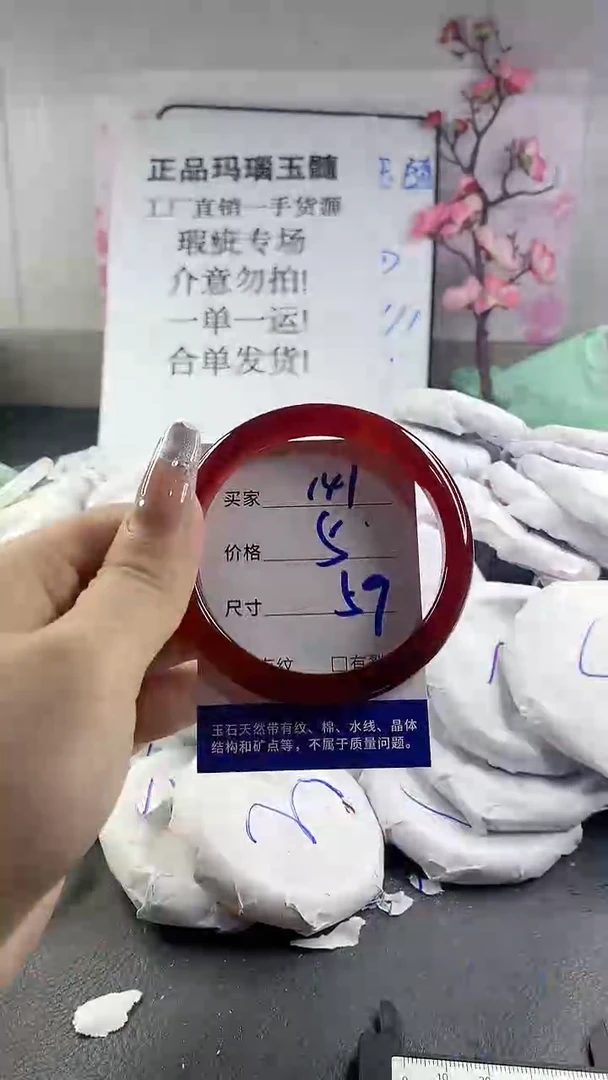 正品玛瑙玉髓
工厂直销一手货源
瑕疵专场
介意勿拍!
一单一运!
合单发货!
买家 141
价格 5
尺寸 59
纹 □有
玉石天然带有纹、棉、水线、晶体
结构和矿点等，不属于质量问题。
0 10 20